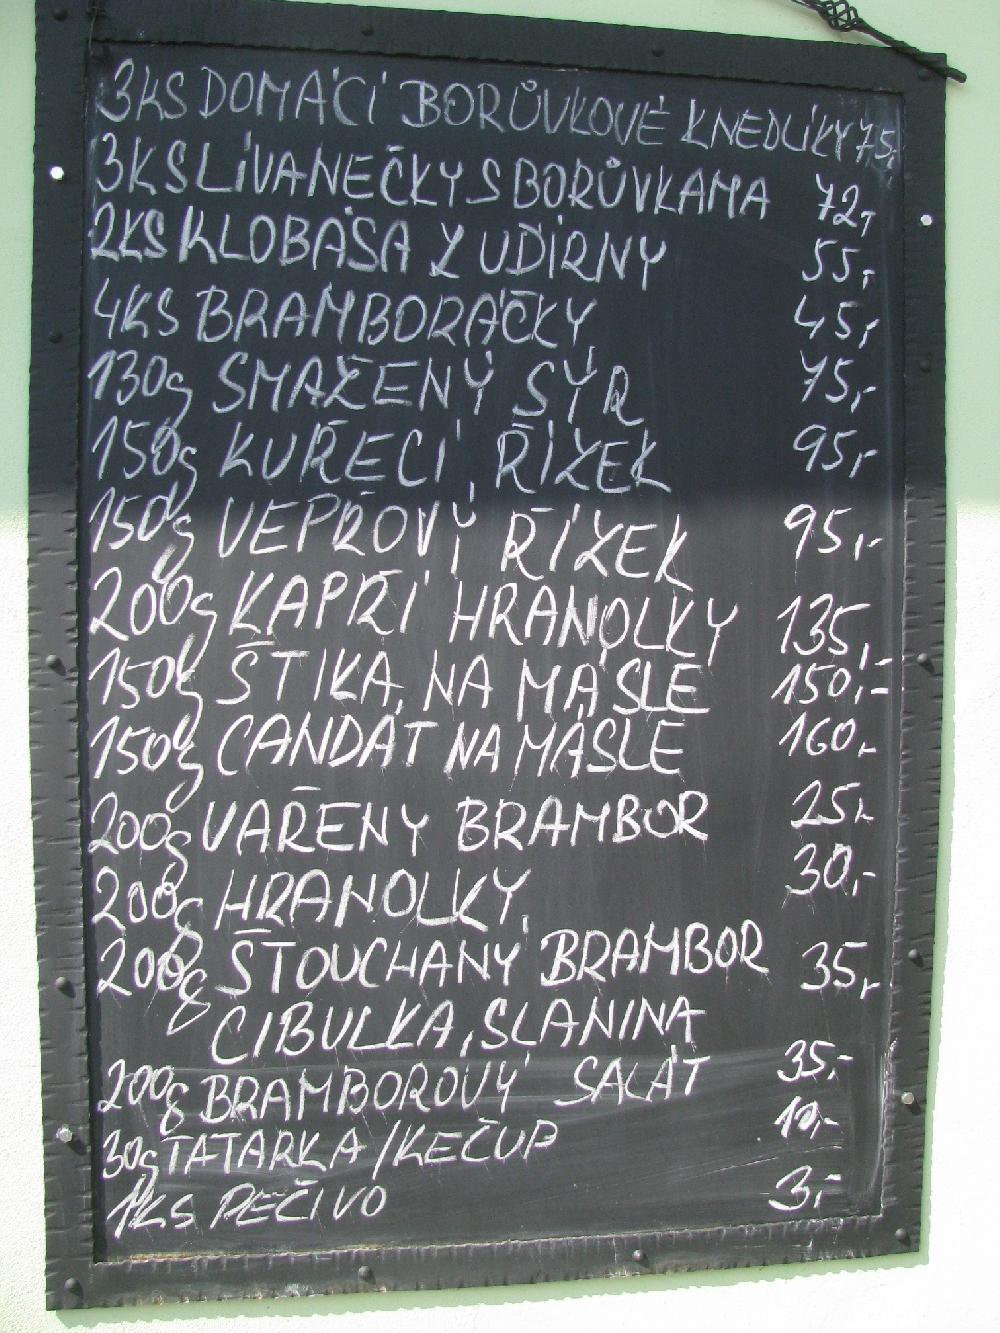 3KS DOMÁCÍ BORŮVKOVÉ KNEDLÍKY 75,
3KS LÍVANEČKY S BORŮVKAMA 72,-
2KS KLOBÁSA Z UDÍRNY 55,-
4KS BRAMBORÁČKY 45,-
130g SMAŽENÝ SÝR 75,-
150g KUŘECÍ ŘÍZEK 95,-
150g VEPŘOVÝ ŘÍZEK 95,-
200g KAPŘÍ HRANOLKY 135,-
150g ŠTIKA NA MÁSLE 150,-
150g CANDÁT NA MÁSLE 160,-
200g VAŘENÝ BRAMBOR 25,-
200g HRANOLKY 30,-
200g ŠTOUCHANÝ BRAMBOR 35,-
CIBULKA, SLANINA
200g BRAMBOROVÝ SALÁT 35,-
30g TATARKA/KEČUP 10,-
1KS PEČIVO 3,-